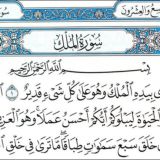 ع والعشرون
سورة الملك
بسم الله الرحمن الرحيم
ى بيده الملك وهو على كل شىء قدير ١
الحيوة ليبلوكم أيكم أحسن عملا وهو العز
خلق سبع سموت طباقا ما ترى فى خلق ا